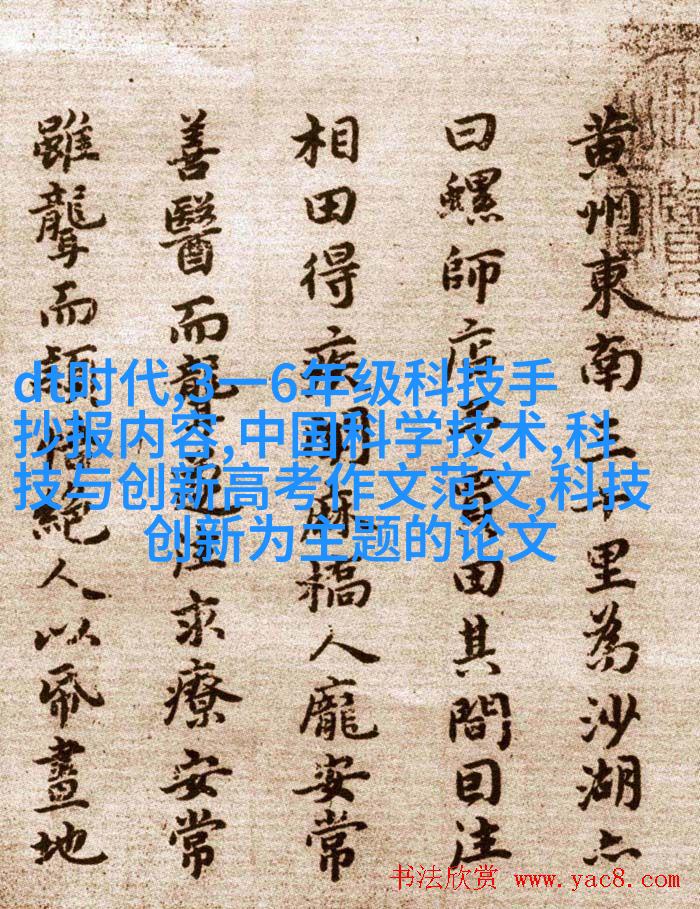 黄州東南三十里為沙湖亦
曰螺師店予買田其間因往
相田得疾聞麻橋人龐安常
善醫而聾遂往求療安常
雖聾而穎悟絕人以帋畫地
dt时代,3一6年级科技手
抄报内容,中国科学技术,科
技与创新高考作文范文,科技
创新为主题的论文
书法欣赏 www.yac8.com